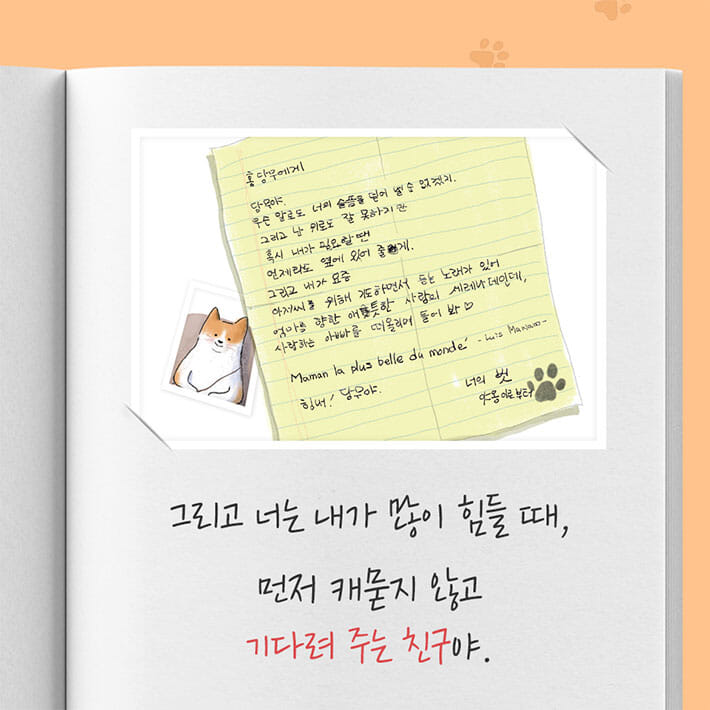 홍당무에게
당무야.
무슨 말로도 너의 슬픔을 덜어 낼 수 없겠지.
그리고 난 위로도 잘 못하지만
혹시 내가 필요할 땐
언제라도 옆에 있어 줄게.
그리고 내가 요즘
아저씨를 위해 기도하면서 듣는 노래가 있어
엄마를 향한 애틋한 사랑의 세레나데인데,
사랑하는 아빠를 떠올리며 들어 봐 ♡
Maman la plus belle du monde - Luis Mariano-
힘내! 당무야.
너의 벗
야옹이로부터
그리고 너는 내가 많이 힘들 때,
먼저 캐묻지 않고
기다려 주는 친구야.